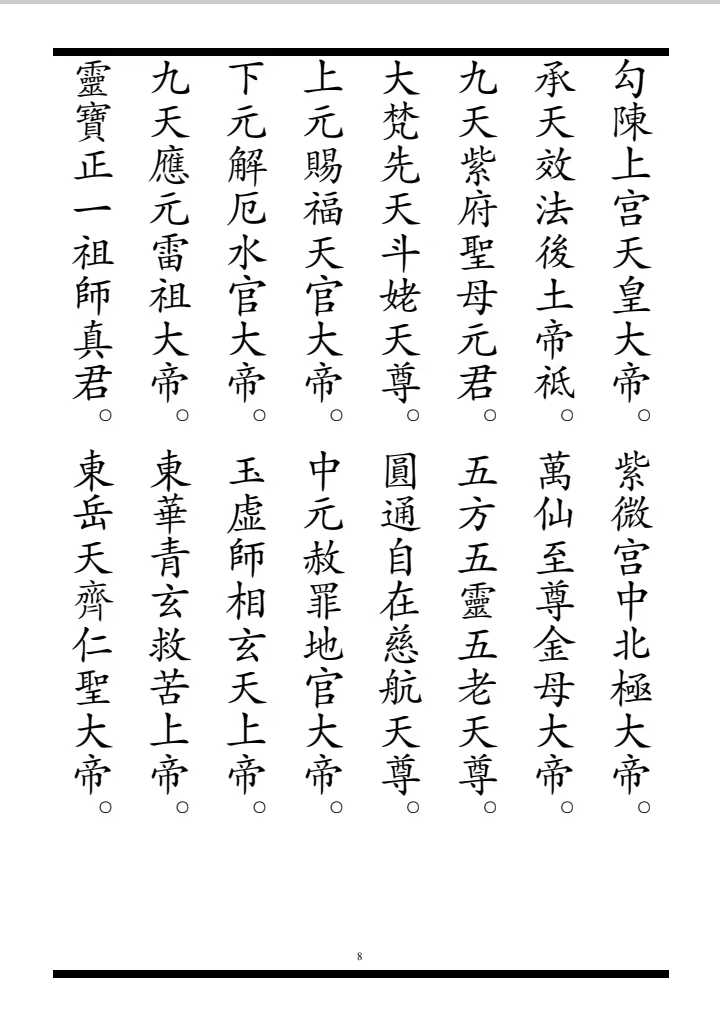 勾陳上宮天皇大帝。紫微宮中北極大帝。
承天效法後土帝祇。萬仙至尊金母大帝。
九天紫府聖母元君。五方五靈五老天尊。
大梵先天斗姥天尊。圓通自在慈航天尊。
上元賜福天官大帝。中元赦罪地官大帝。
下元解厄水官大帝。玉虛師相玄天上帝。
九天應元雷祖大帝。東華青玄救苦上帝。
靈寶正一祖師真君。東岳天齊仁聖大帝。
8